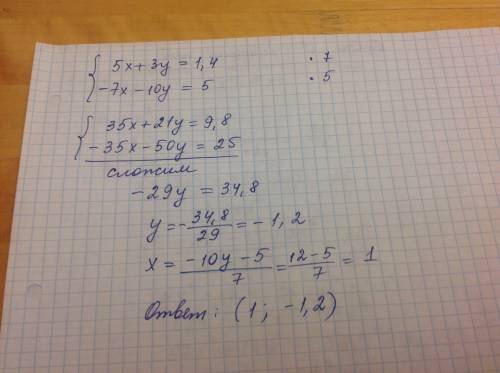 { 5x+3y = 1,4 · 7
-7x-10y = 5 · 5
{ 35x+21y = 9,8
-35x-50y = 25
сложим
-29y = 34,8
y = -34,8/29 = -1,2
x = (-10y-5)/7 = (12-5)/7 = 1
Ответ: (1; -1,2)